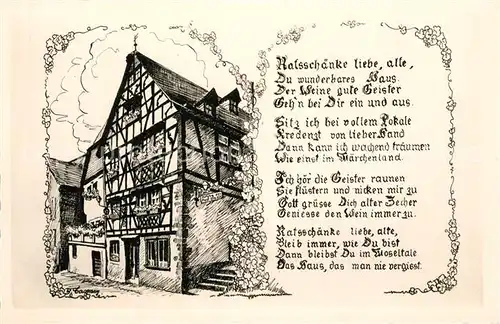 Ratsschänke liebe, alte,
Du wunderbares Haus.
Der Weine gute Geister
Geh'n bei Dir ein und aus.
Sitz ich bei vollem Pokale
Kredenzt von lieber Hand
Dann kann ich wachend träumen
Wie einst im Märchenland.
Ich hör die Geister raunen
Sie flüstern und nicken mir zu
Gott grüsse Dich alter Zecher
Geniesse den Wein immerzu.
Ratsschänke liebe, alte,
Bleib immer, wie Du bist
Dann bleibst Du im Moseltale
Das Haus, das man nie vergisst.